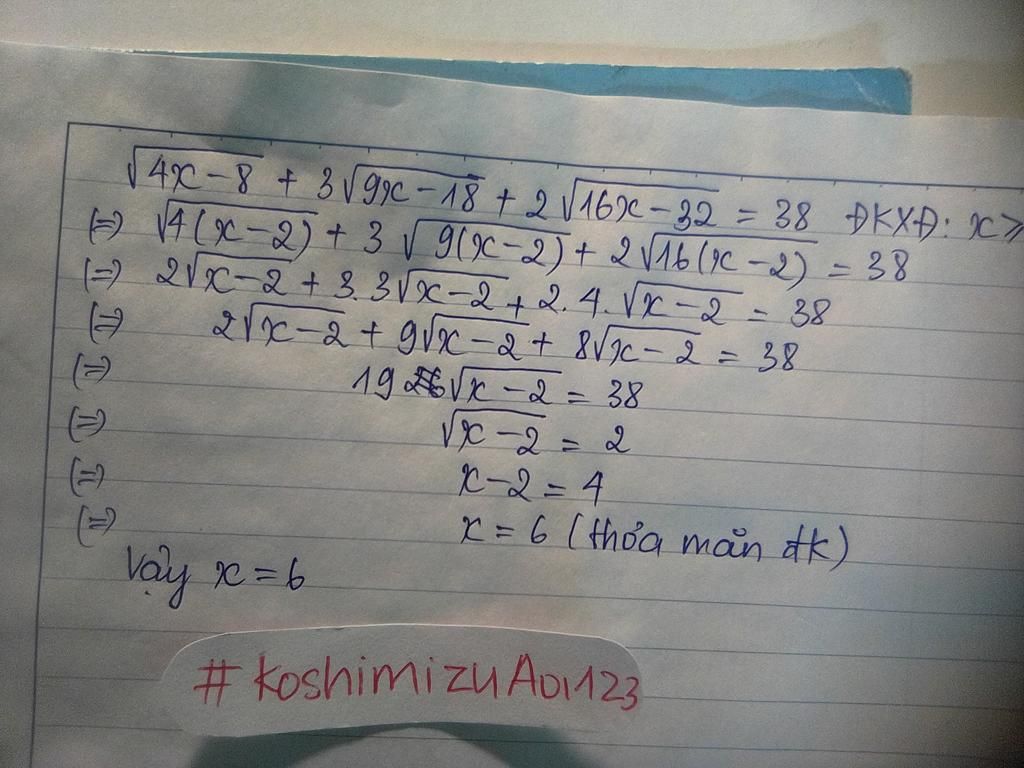 √4x-8 + 3√9x-18 + 2√16x-32 = 38 ĐKXĐ: x≥
(=) √4(x-2) + 3 √9(x-2) + 2√16(x-2) = 38
(=) 2√x-2 + 3.3√x-2 + 2.4.√x-2 = 38
(=) 2√x-2 + 9√x-2 + 8√x-2 = 38
(=) 19 √x-2 = 38
(=) √x-2 = 2
(=) x-2 = 4
(=) x = 6 (thỏa mãn đk)
Vậy x = 6
#KoshimizuAoi123